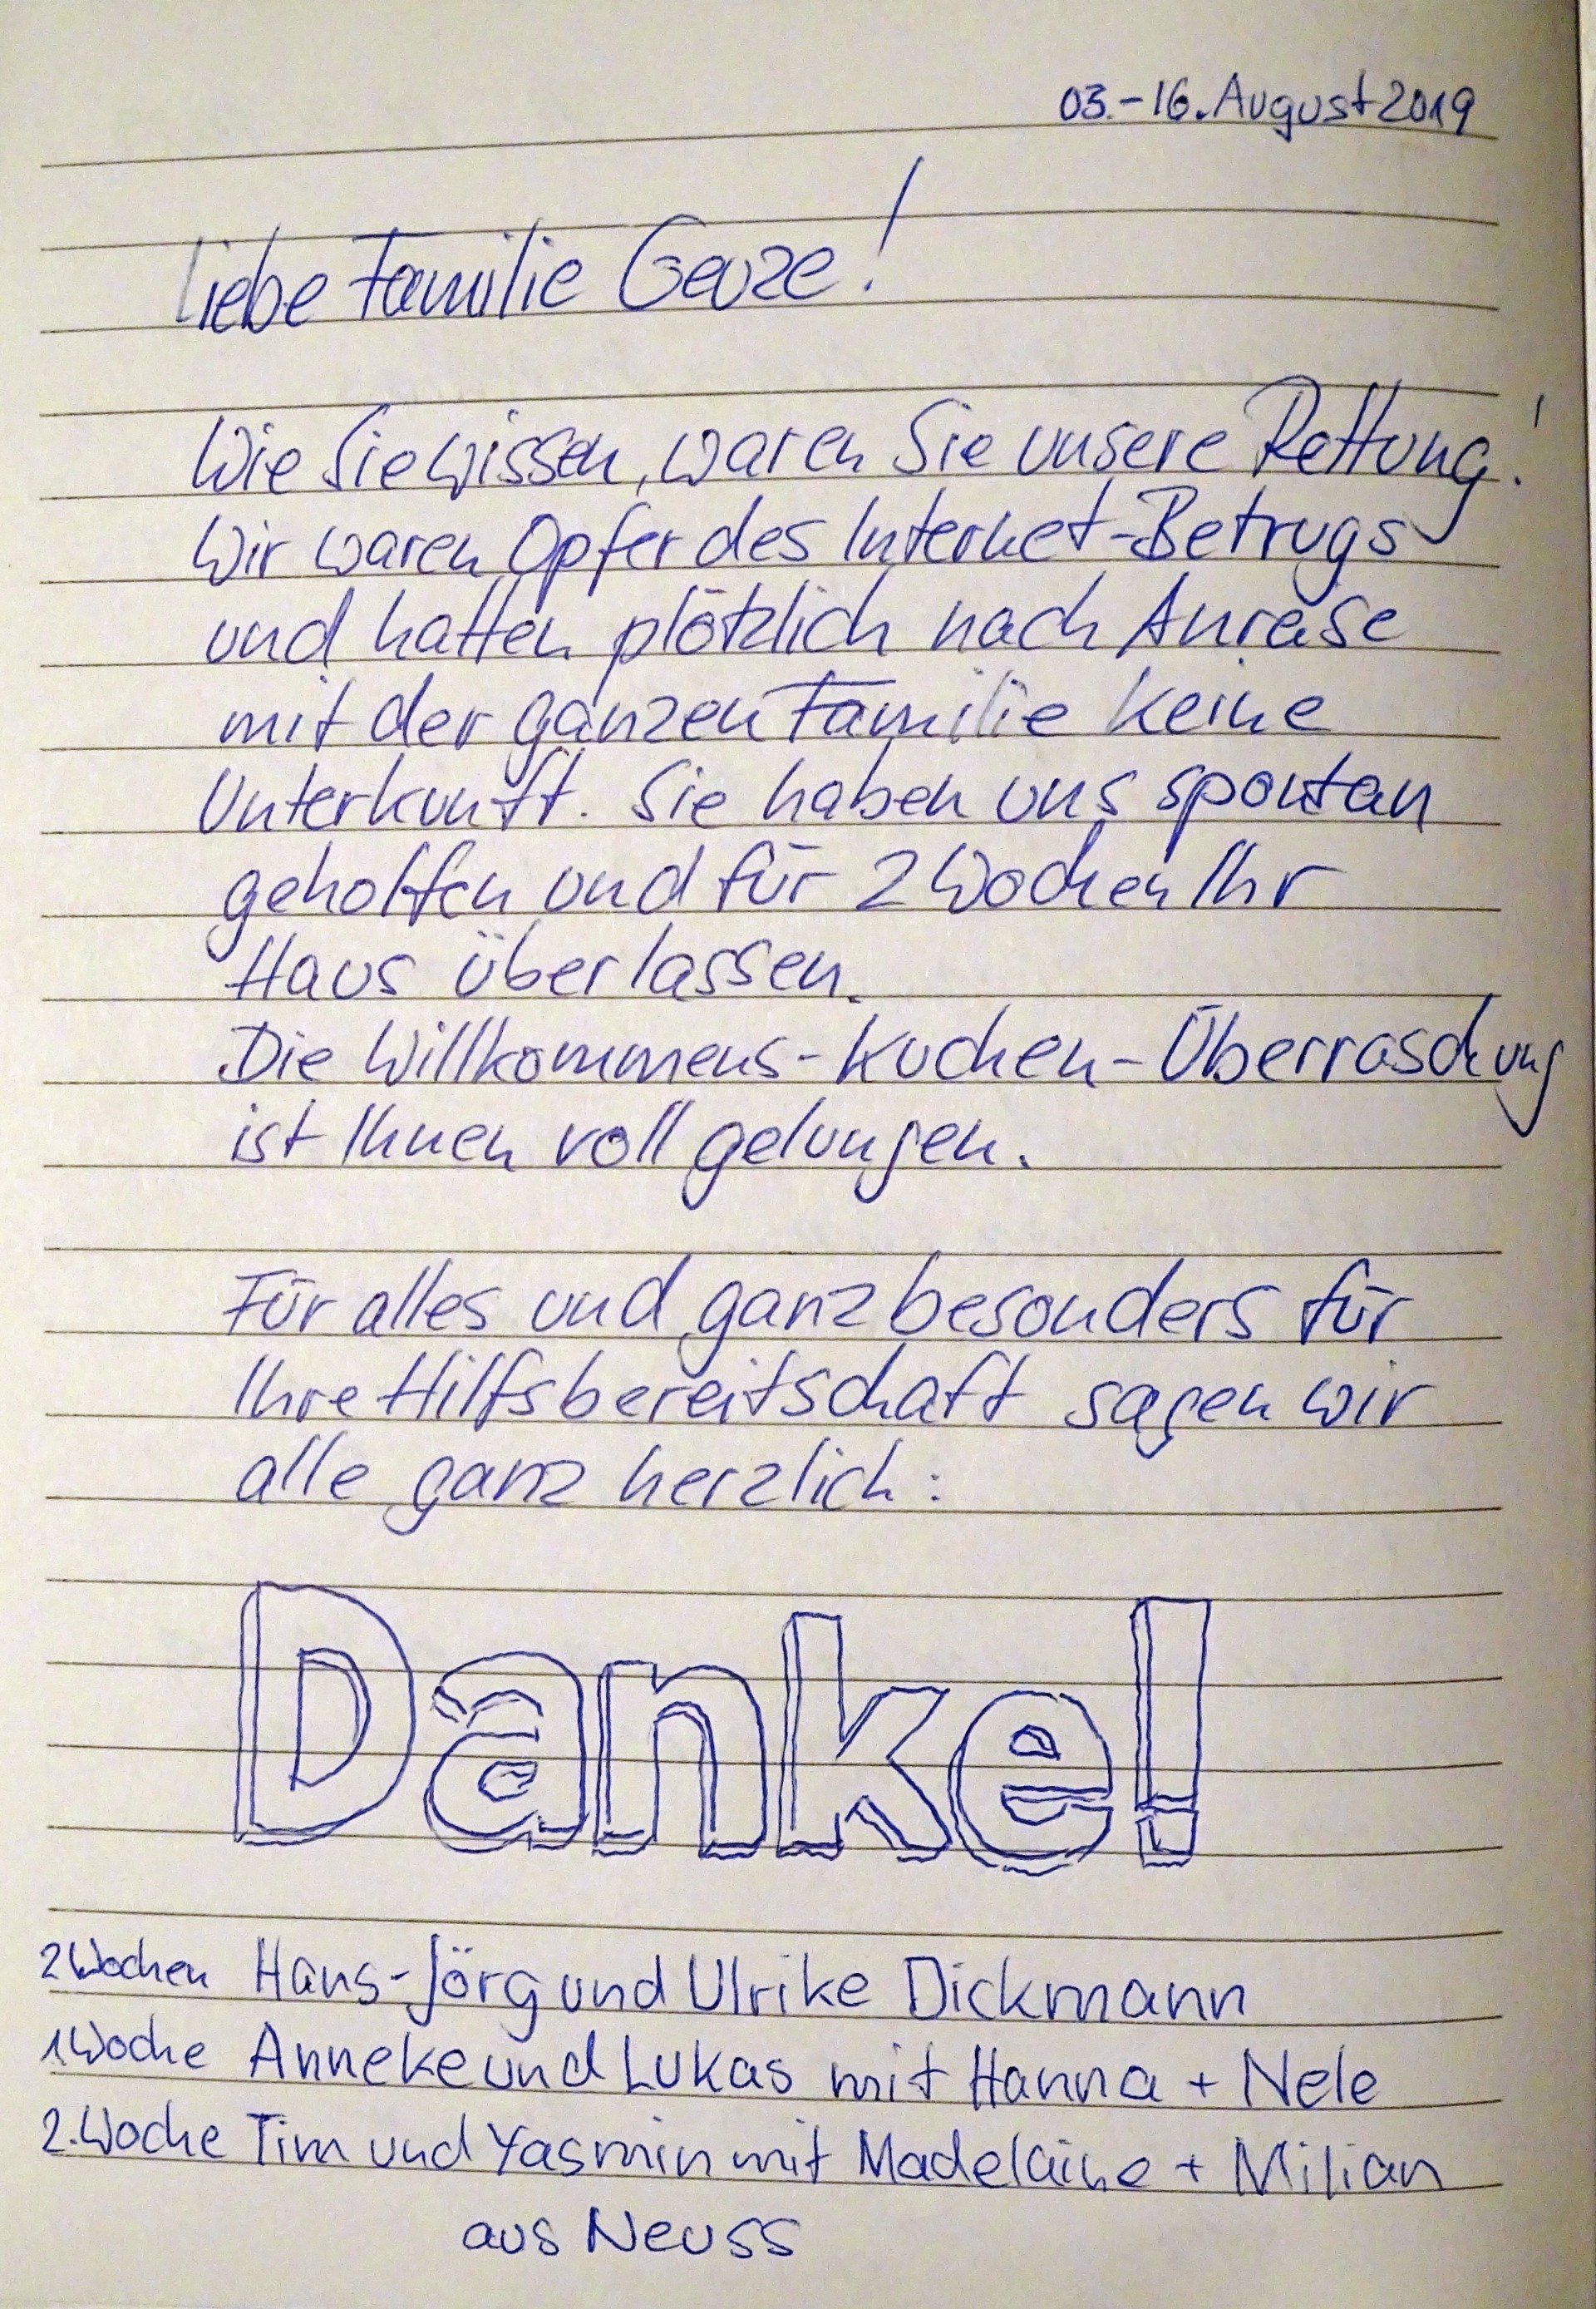 03.-16. August 2019
Liebe Familie Geuze!
Wie Sie wissen, waren Sie unsere Rettung!
Wir waren Opfer des Internet-Betrugs
und hatten plötzlich nach Anreise
mit der ganzen Familie keine
Unterkunft. Sie haben uns spontan
geholfen und für 2 Wochen Ihr
Haus überlassen.
Die Willkommens-Kuchen-Überraschung
ist Ihnen voll gelungen.
Für alles und ganz besonders für
Ihre Hilfsbereitschaft sagen wir
alle ganz herzlich:
Danke!
2 Wochen Hans-Jörg und Ulrike Dickmann
1. Woche Anneke und Lukas mit Hanna + Nele
2. Woche Tim und Yasmin mit Madelaine + Milian
aus Neuss